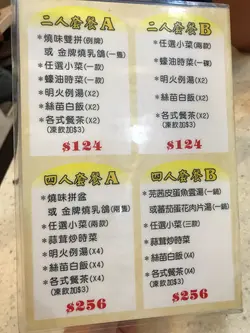 二人套餐A
*燒味雙拼(例牌)
或 金牌燒乳鴿(一隻)
*任選小菜(一款)
*蠔油時菜(一碟)
*明火例湯(X2)
*絲苗白飯(X2)
*各式餐茶(X2)
(凍飲加$3)
$124
二人套餐B
*任選小菜(兩款)
*蠔油時菜(一碟)
*明火例湯(X2)
*絲苗白飯(X2)
*各式餐茶(X2)
(凍飲加$3)
$124
四人套餐A
*燒味拼盆
或 金牌燒乳鴿(兩隻)
*任選小菜(兩款)
*蒜茸炒時菜
*明火例湯(X4)
*絲苗白飯(X4)
*各式餐茶(X4)
(凍飲加$3)
$256
四人套餐B
*芫茜皮蛋魚雲湯(一鍋)
或蕃茄蛋花肉片湯(一鍋)
*任選小菜(三款)
*蒜茸炒時菜
*絲苗白飯(X4)
*各式餐茶(X4)
(凍飲加$3)
$256